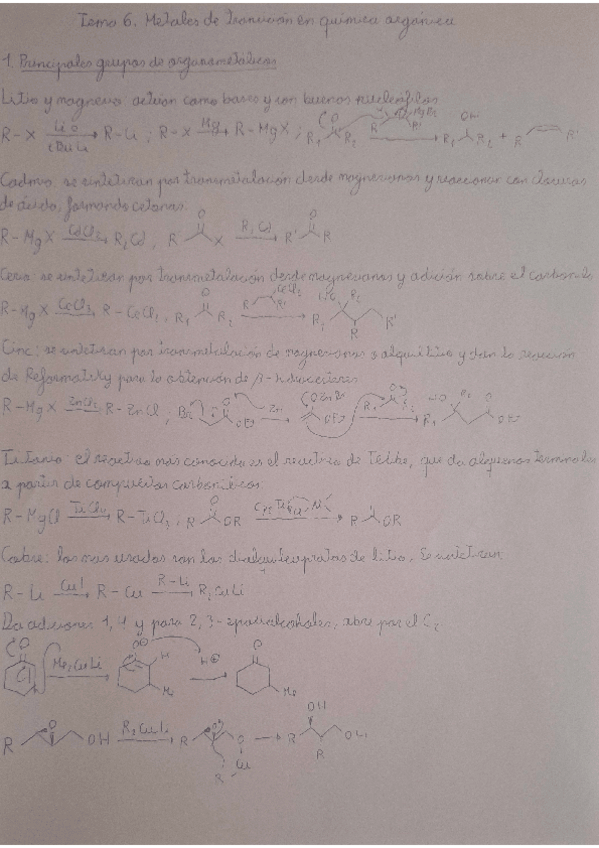 Tema 6. Metales de transición en química orgánica
1. Principales grupos de organometálicos
Litio y magnesio: actúan como bases y son buenos nucleófilos
R-X → R-Li ; R-X Mg → R-MgX ;
Cadmio: se sintetizan por transmetalación desde magnesianos y reaccionan con cloruros
de ácido, formando cetonas:
R-MgX CdCl2 → R2Cd , R X R2Cd → R' R
Cerio: se sintetizan por transmetalación desde magnesianos y adición sobre el carbonilo
R-MgX CeCl3 → R-CeCl2 , R1 R2
Cinc: se sintetizan por transmetalación de magnesianos y alquil litio y dan la reacción
de Reformatsky para la obtención de β-hidroxiésteres
R-MgX ZnCl2 → R-ZnCl ; Br OEt Zn → OZnBr OEt
Titanio: el reactivo más conocido es el reactivo de Tebbe, que da alquenos terminales
a partir de compuestos carbonílicos:
R-MgCl TiCl4 → R-TiCl3 ; R OR → R OR
Cobre: los más usados son los dialquilcupratos de litio. Se sintetizan
R-Li CuI → R-Cu R-Li → R2CuLi
Da adiciones 1,4 y para 2,3-epoxialcoholes, abre por el C2
O Me2CuLi → H Me H⊕ → O Me
R O OH R2CuLi → R O Cu R → R OH R OH